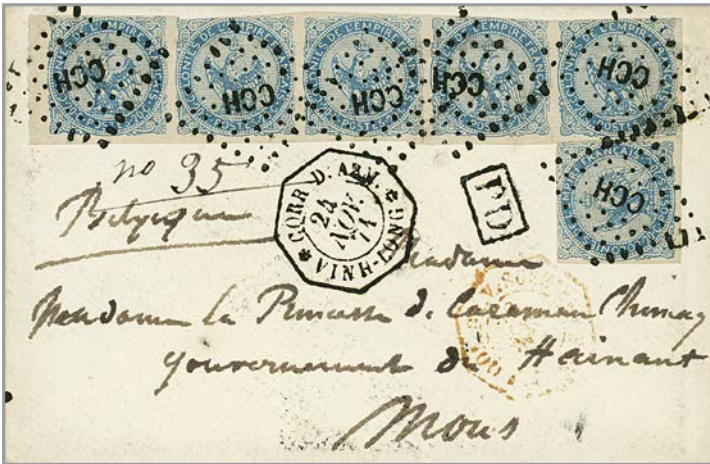 COLONIES DE L'EMPIRE FRANÇAIS
CCH CCH CCH CCH CCH
CCH
no 35
Belgique
CORR. D. ARM.
24
NOV.
71
VINH-LONG
PD
Madame
Madame la Princesse de Caraman Chimay
gouvernement du Hainaut
Mons